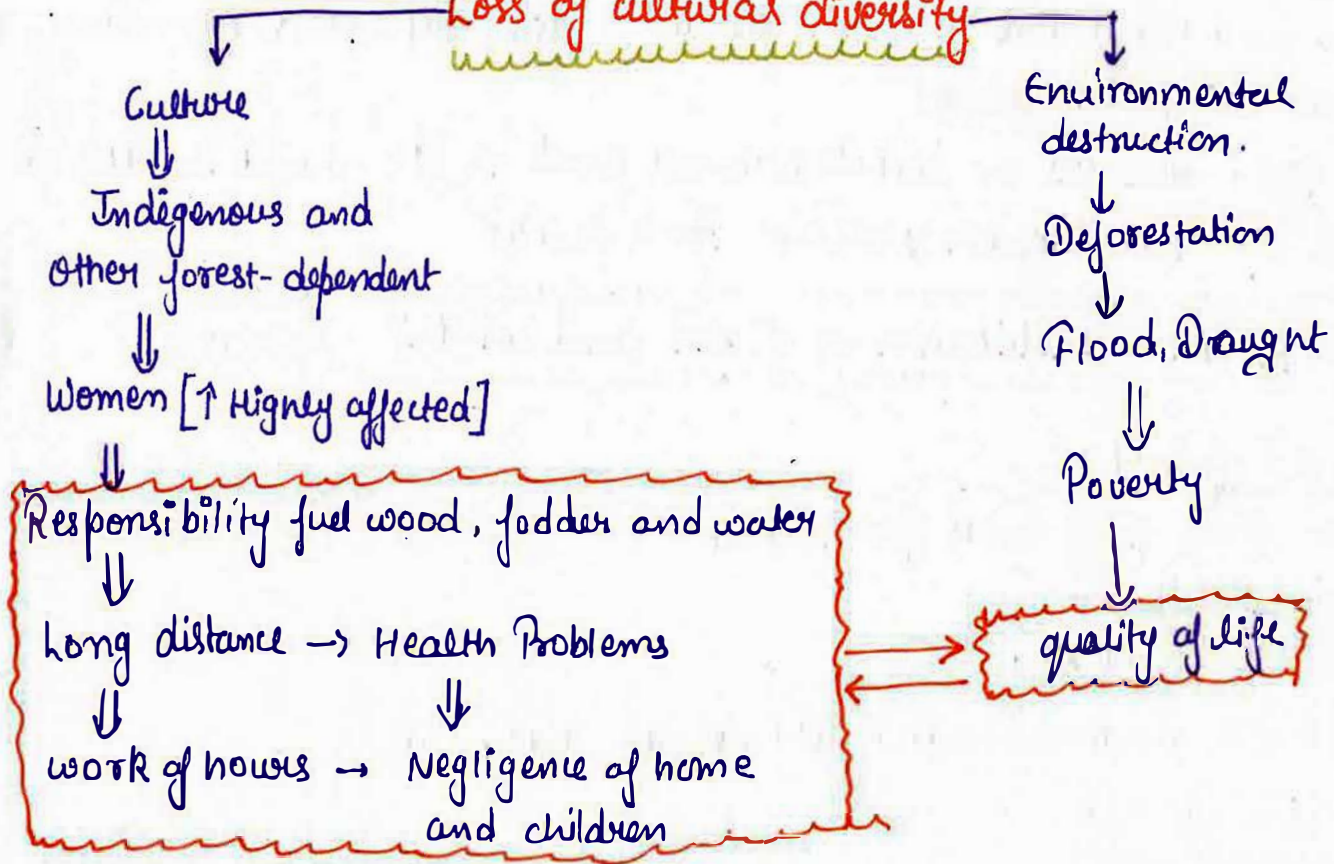 Loss of cultural diversity
Culture
Indigenous and
Other forest-dependent
Women [↑ Highly affected]
Responsibility fuel wood, fodder and water
Long distance → Health Problems
work of hours → Negligence of home
and children
Environmental
destruction.
Deforestation
Flood, Draught
Poverty
quality of life